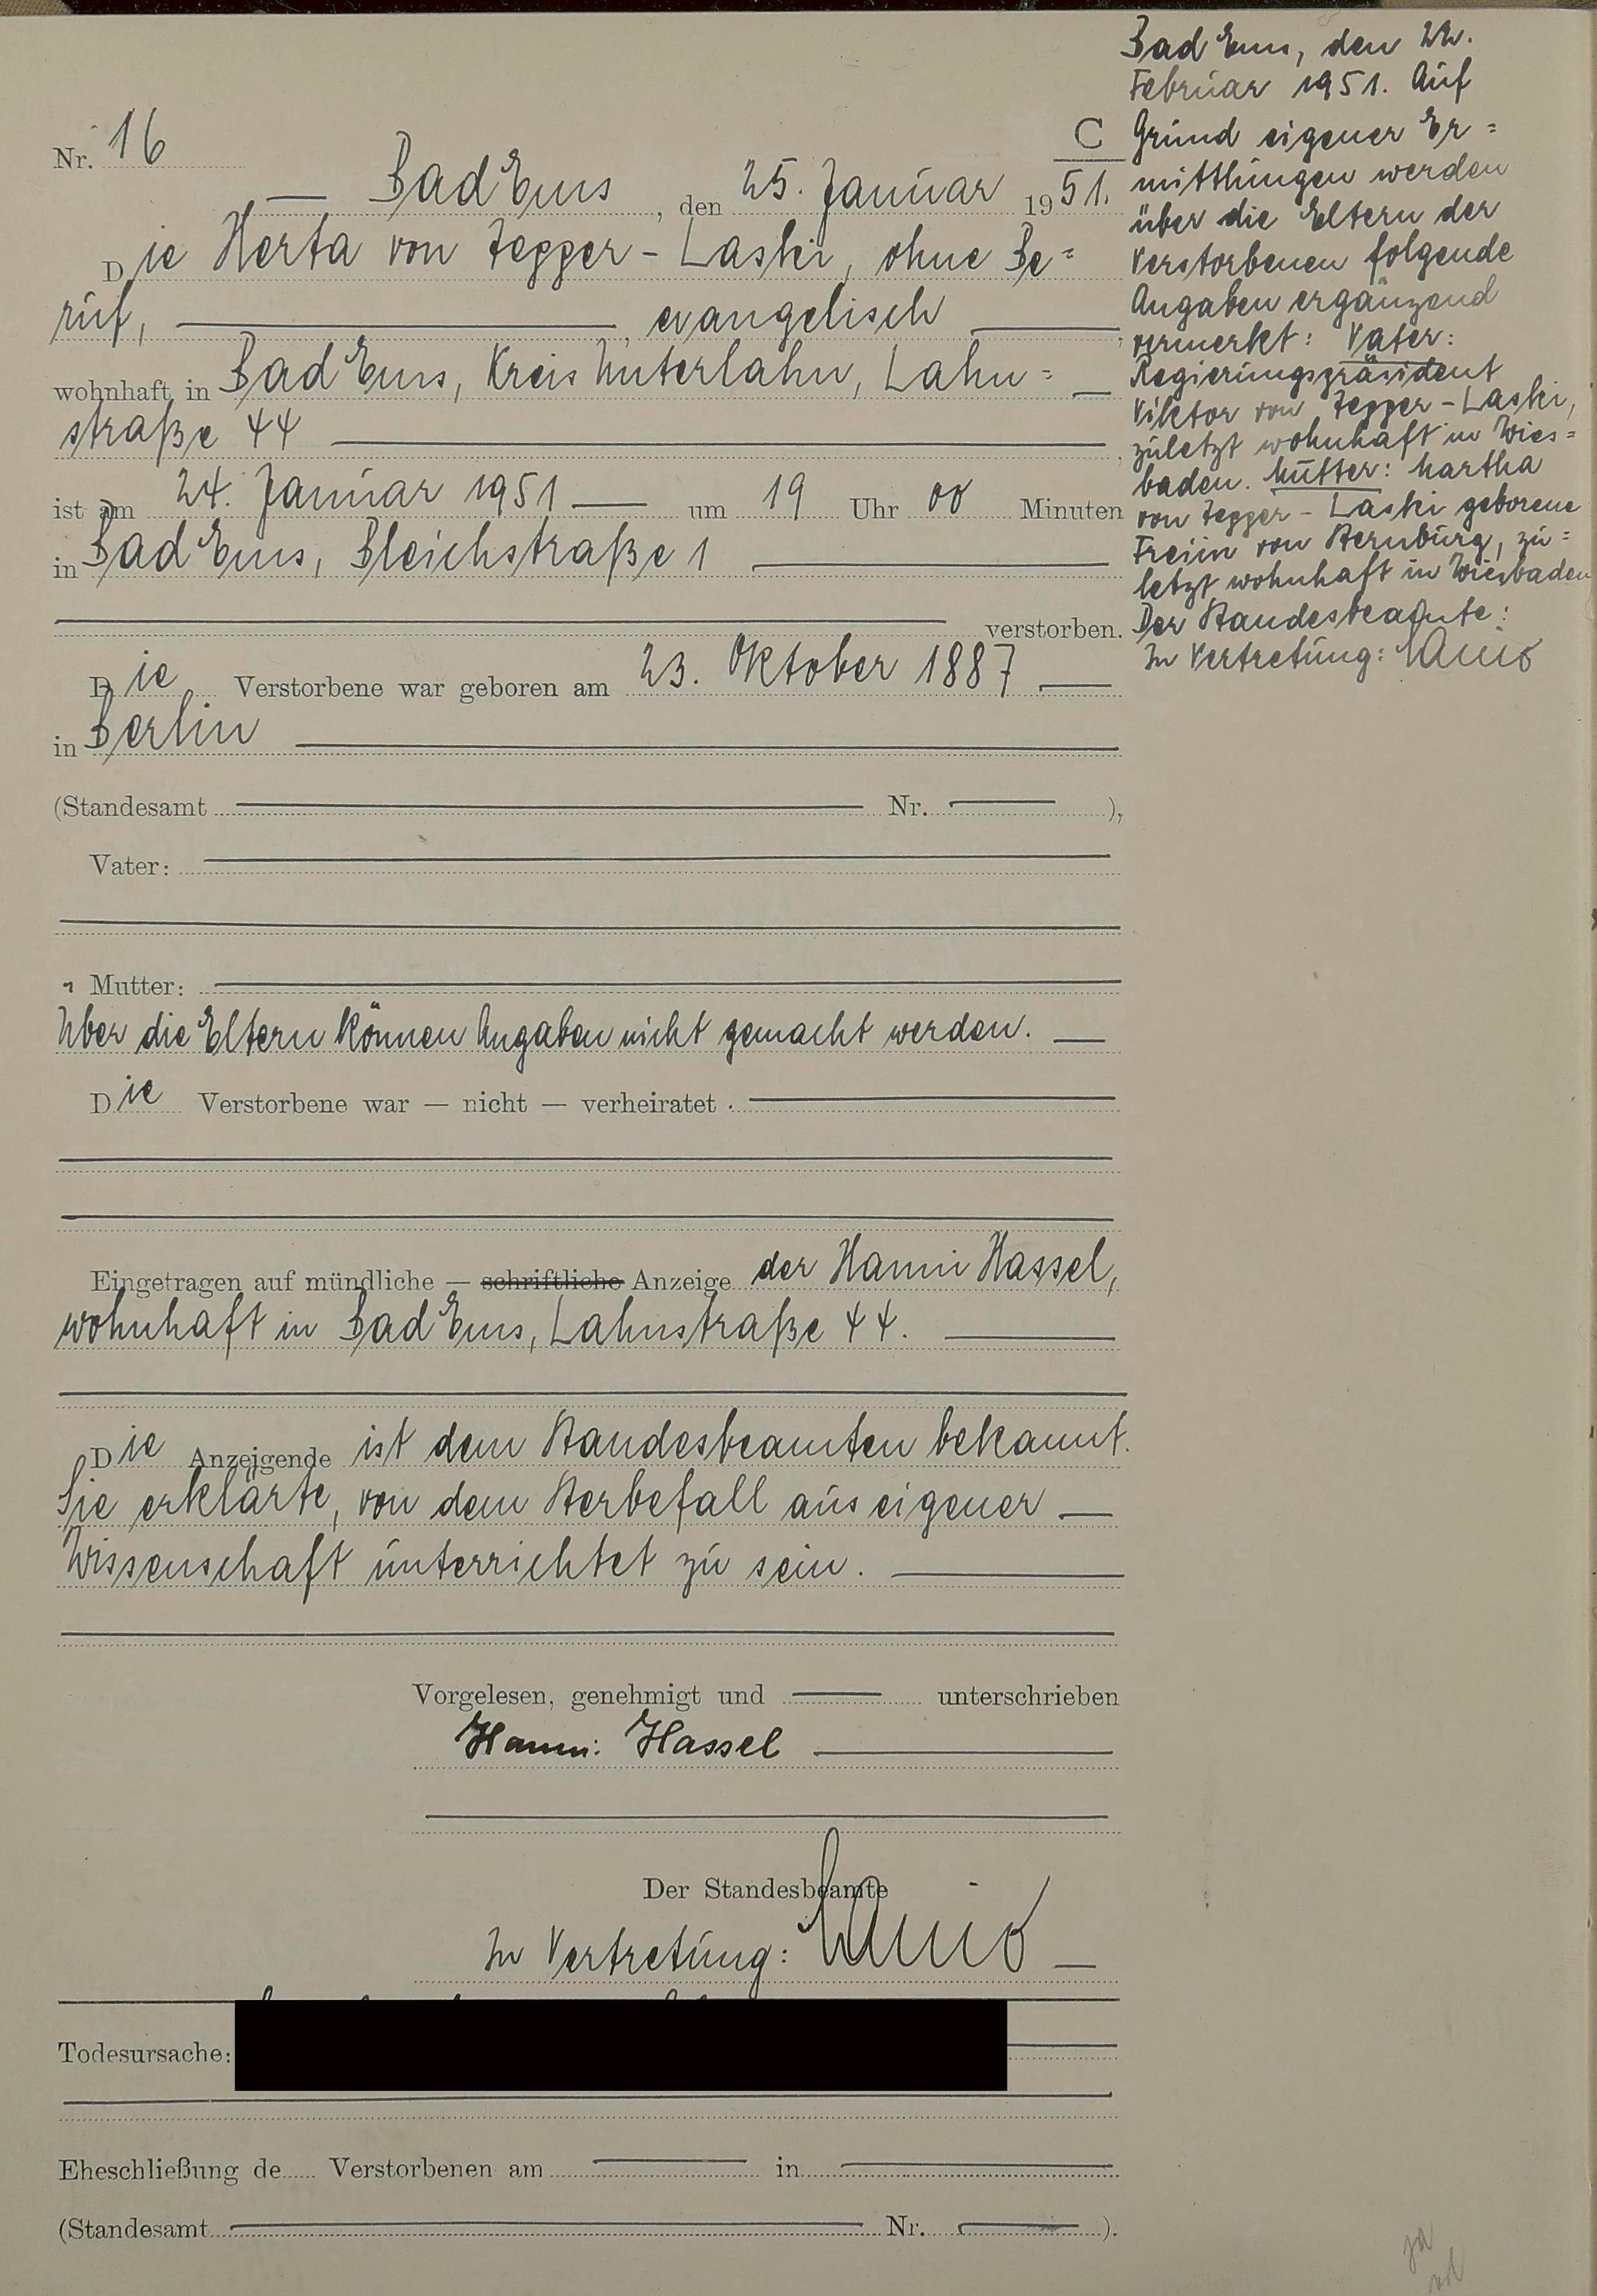 Nr. 16
C
— Bad Ems, den 25. Januar 1951.
Die Herta von Tepper-Laski, ohne Be=
ruf, evangelisch
wohnhaft in Bad Ems, Kreis Unterlahn, Lahn=
straße 44
ist am 24. Januar 1951 um 19 Uhr 00 Minuten
in Bad Ems, Bleichstraße 1
verstorben.
Die Verstorbene war geboren am 23. Oktober 1887
in Berlin
(Standesamt Nr. ),
Vater:
Mutter:
Über die Eltern können Angaben nicht gemacht werden.
Die Verstorbene war — nicht — verheiratet.
Eingetragen auf mündliche — schriftliche Anzeige der Hanni Hassel,
wohnhaft in Bad Ems, Lahnstraße 44.
Die Anzeigende ist dem Standesbeamten bekannt.
Sie erklärte, von dem Sterbefall aus eigener
Wissenschaft unterrichtet zu sein.
Vorgelesen, genehmigt und unterschrieben
Hanni Hassel
Der Standesbeamte
In Vertretung:
Todesursache:
Eheschließung de Verstorbenen am in
(Standesamt Nr. ).
Bad Ems, den 22.
Februar 1951. Auf
Grund eigener Er=
mittlungen werden
über die Eltern der
Verstorbenen folgende
Angaben ergänzend
vermerkt: Vater:
Regierungspräsident
Viktor von Tepper-Laski,
zuletzt wohnhaft in Wies=
baden. Mutter: Martha
von Tepper-Laski geborene
Freiin von Sternburg, zu=
letzt wohnhaft in Wiesbaden
Der Standesbeamte:
In Vertretung:
ja